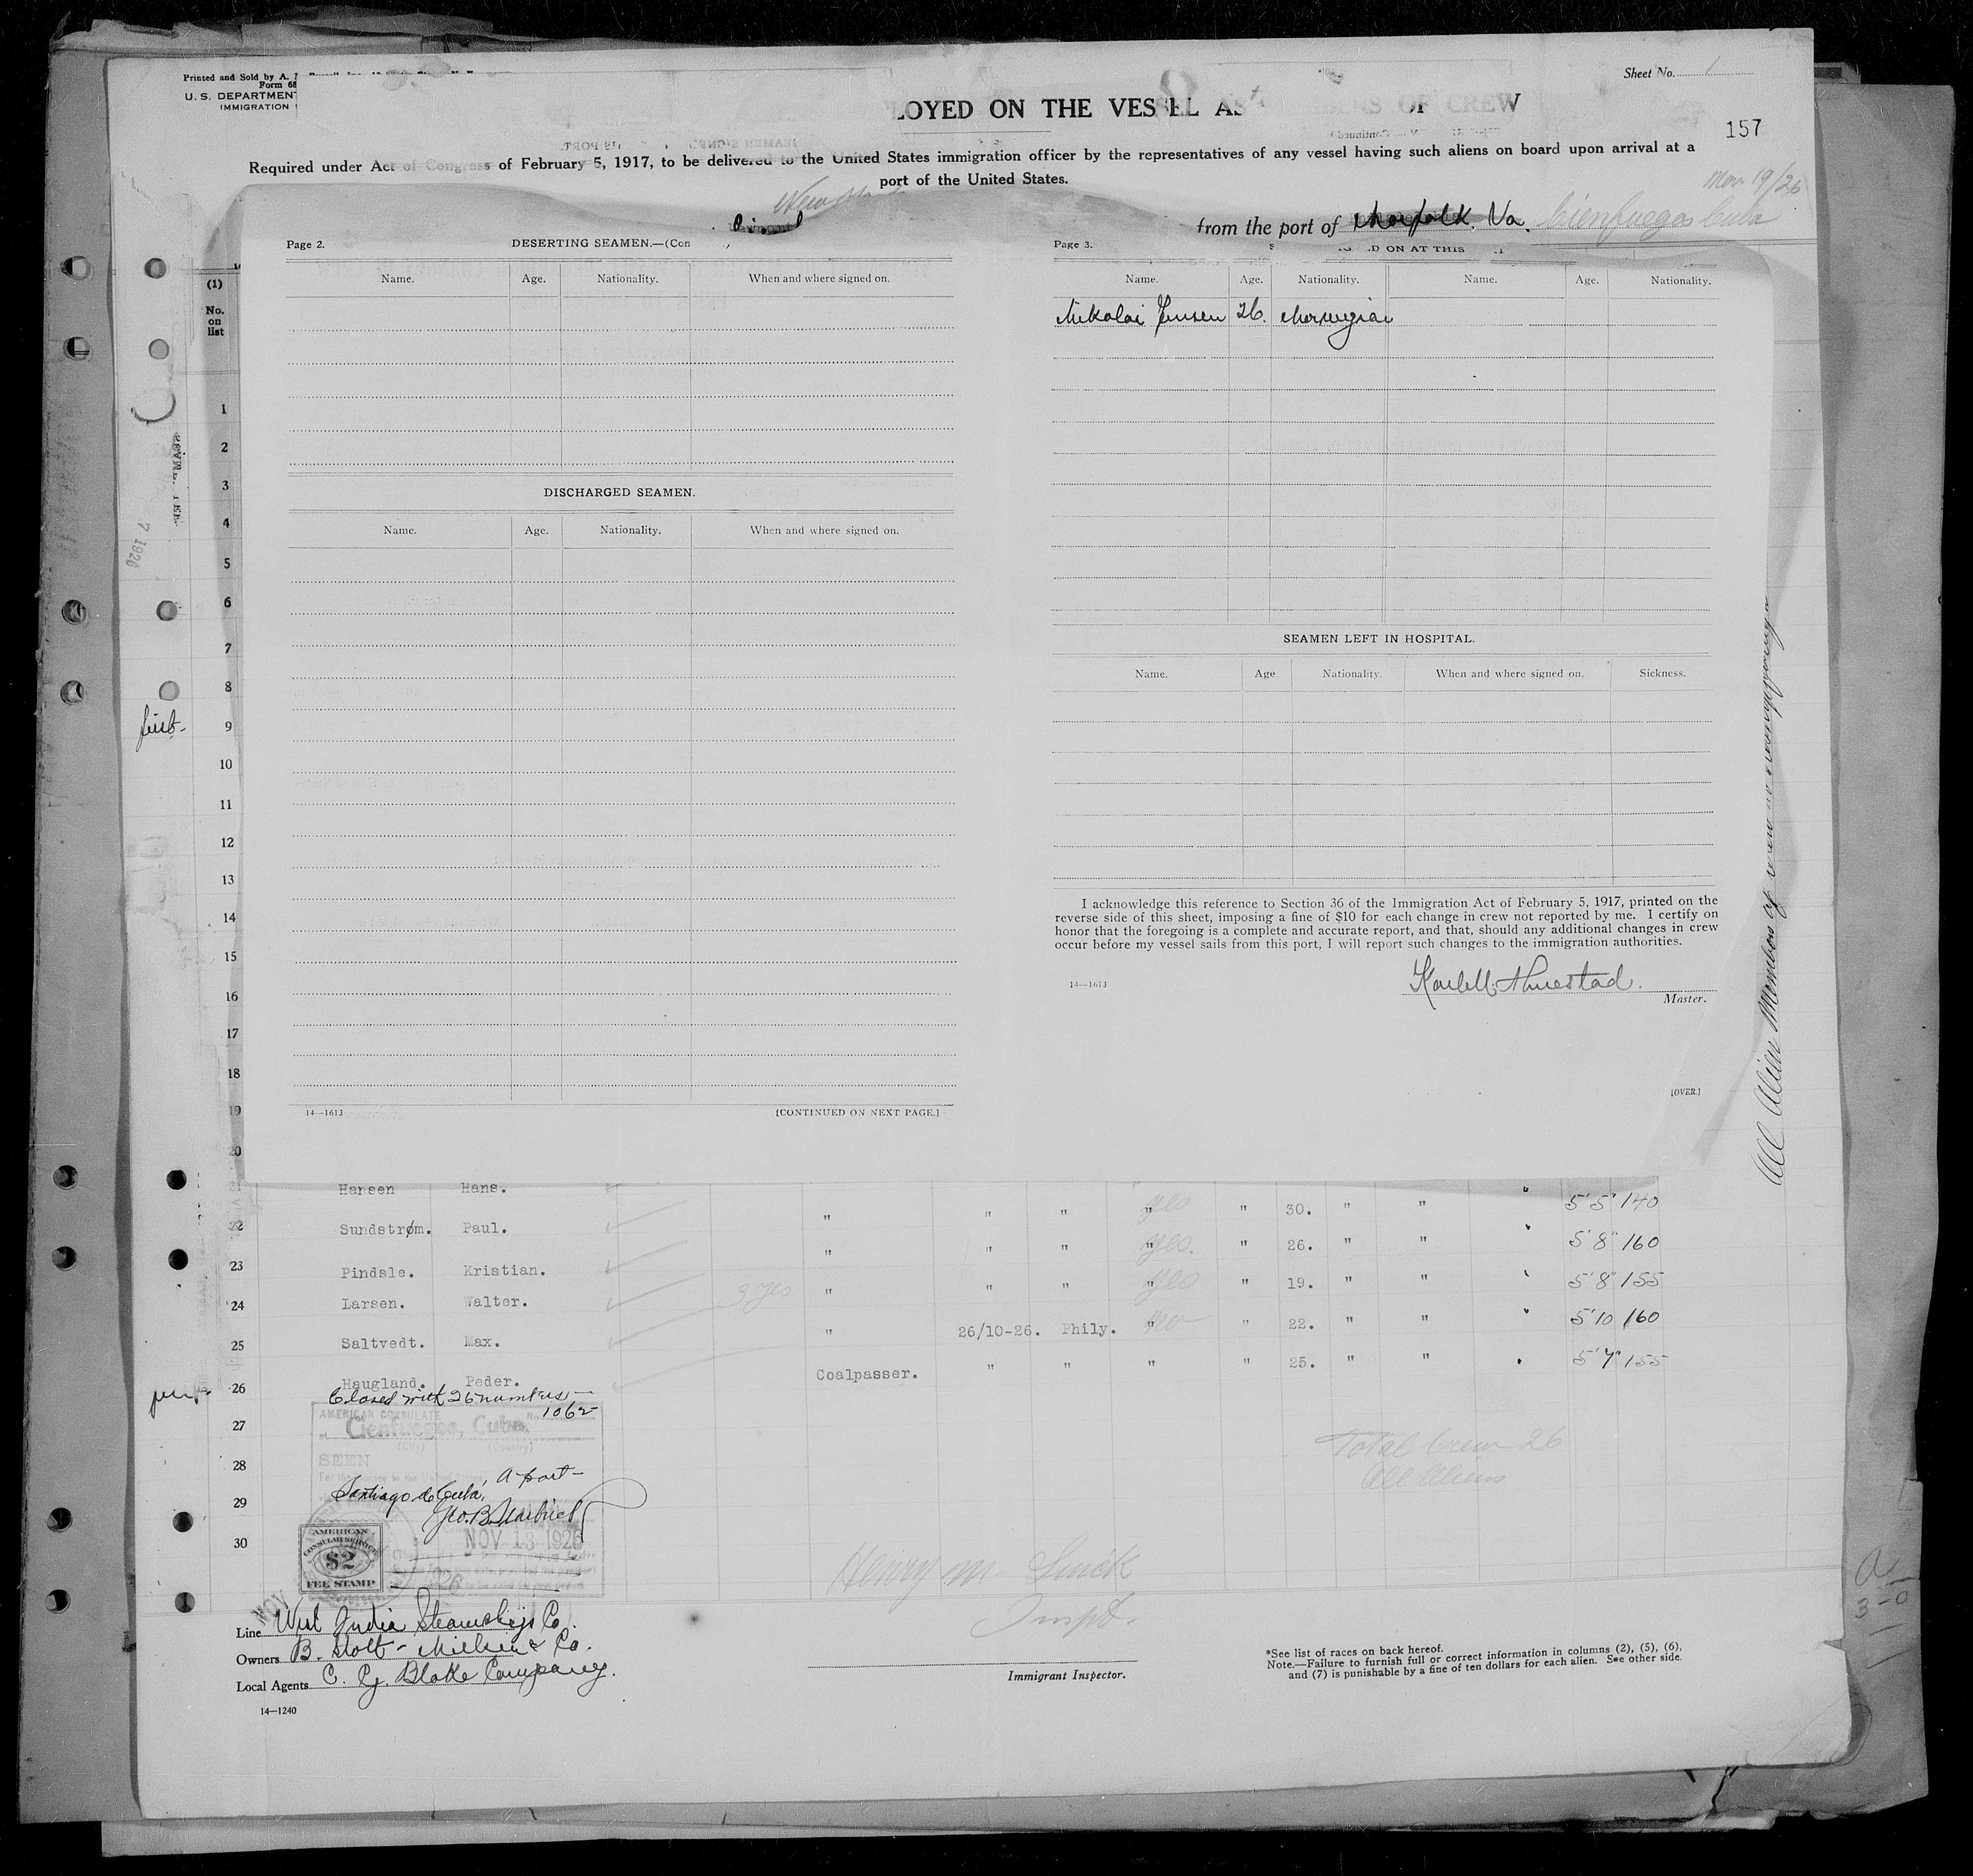 Printed and Sold by A.
Form 68
U. S. DEPARTMENT
IMMIGRATION
Sheet No. 1
LOYED ON THE VESSEL AS OF CREW
157
Required under Act of Congress of February 5, 1917, to be delivered to the United States immigration officer by the representatives of any vessel having such aliens on board upon arrival at a
port of the United States.
Nov 19/26
from the port of Norfolk, Va. Cienfuegos Cuba
Page 2.
DESERTING SEAMEN.—(Con
Name. Age. Nationality. When and where signed on.
DISCHARGED SEAMEN.
Name. Age. Nationality. When and where signed on.
14—1613
[CONTINUED ON NEXT PAGE.]
Page 3.
D ON AT THIS
Name. Age. Nationality. Name. Age. Nationality.
Nikolai Jensen 26. Norwegian
SEAMEN LEFT IN HOSPITAL.
Name. Age Nationality. When and where signed on. Sickness.
I acknowledge this reference to Section 36 of the Immigration Act of February 5, 1917, printed on the
reverse side of this sheet, imposing a fine of $10 for each change in crew not reported by me. I certify on
honor that the foregoing is a complete and accurate report, and that, should any additional changes in crew
occur before my vessel sails from this port, I will report such changes to the immigration authorities.
14—1613
Master.
[OVER.]
All Alien Members of crew
(1)
No.
on
list
1
2
3
4
5
6
7
8
9
10
11
12
13
14
15
16
17
18
19
20
21 Hansen Hans. " " " yes " 30. " " " 5'5" 140
22 Sundstrøm. Paul. " " " yes. " 26. " " " 5'8" 160
23 Pindsle. Kristian. " " " yes " 19. " " " 5'8" 155
24 Larsen. Walter. 3 yrs " 26/10-26. Phily. " " 22. " " " 5'10 160
25 Saltvedt. Max. " " " " " 25. " " " 5'7" 155
26 Haugland. Peder. Coalpasser.
27
28
29
30
Closed with 26 numbers—
1062
AMERICAN CONSULATE
Cienfuegos, Cuba
(City) (Country)
SEEN
For the journey to the United States
A port—
Santiago de Cuba,
NOV 13 1926
AMERICAN
CONSULAR SERVICE
$2
FEE STAMP
Total Crew 26
All Aliens
Henry M.
Inspt.
Immigrant Inspector.
Line West India Steamship Co.
Owners B. Stolt-Nielsen & Co.
Local Agents C. G. Blake Company.
14—1240
*See list of races on back hereof.
Note.—Failure to furnish full or correct information in columns (2), (5), (6),
and (7) is punishable by a fine of ten dollars for each alien. See other side.